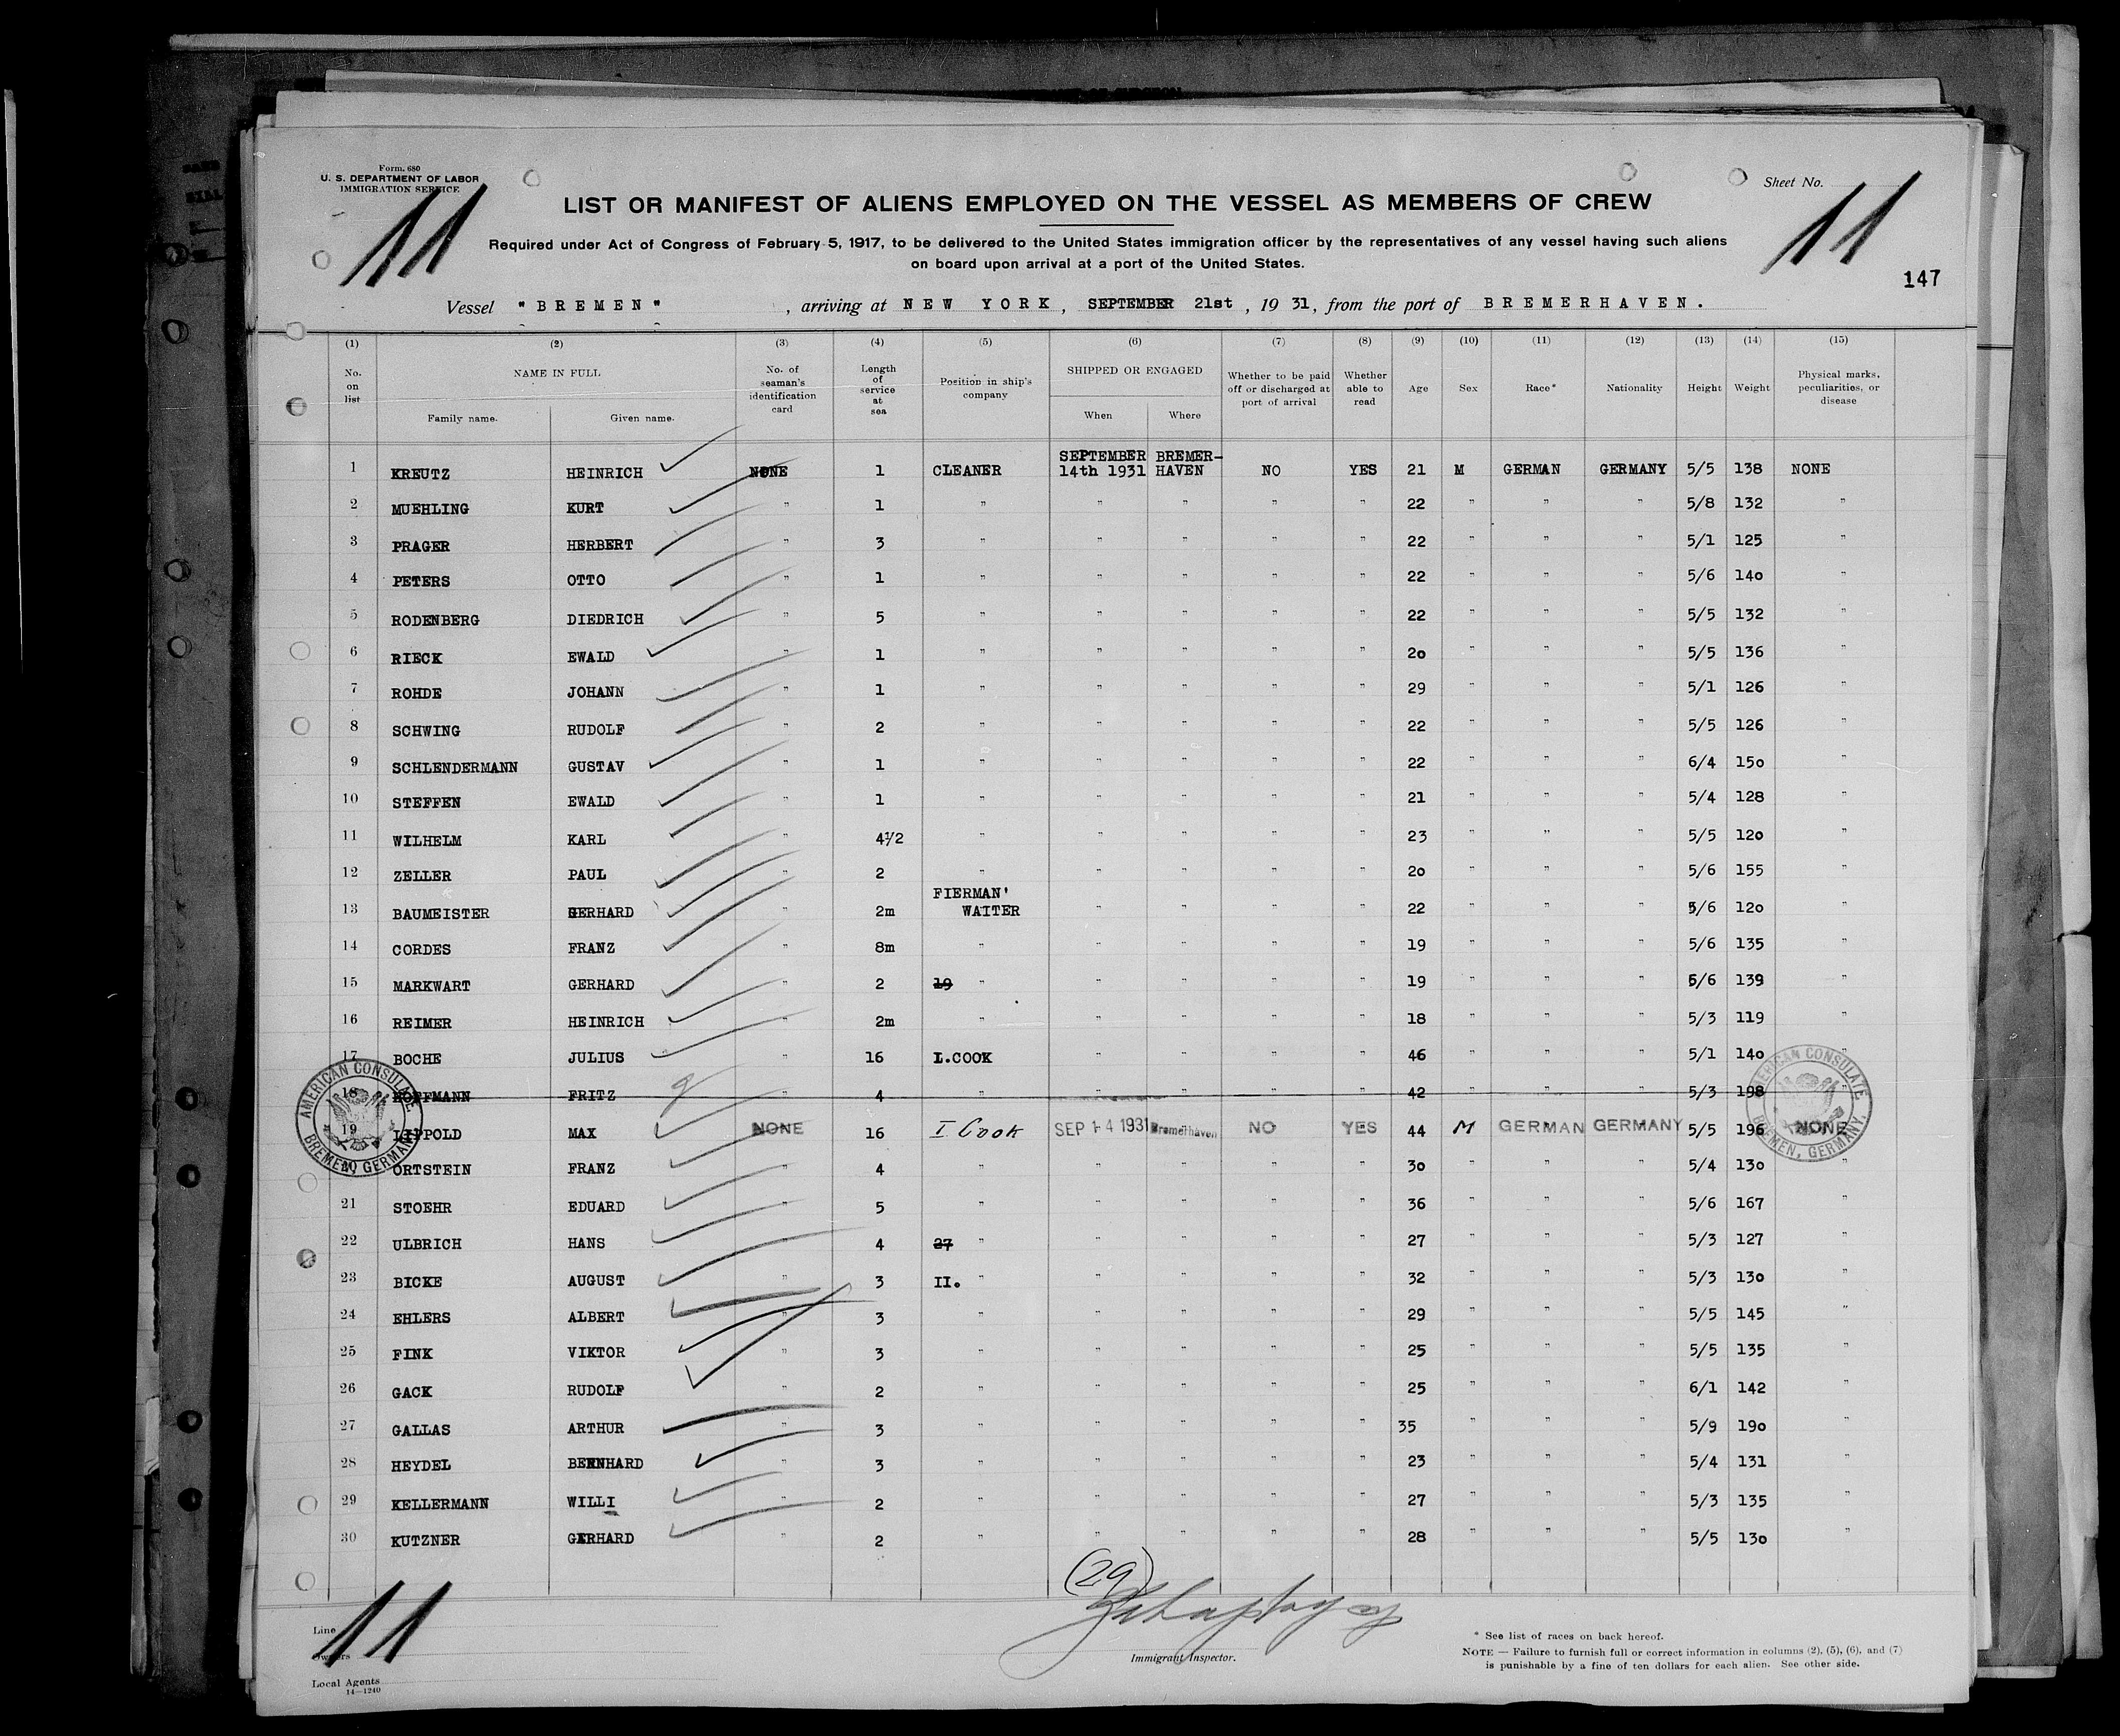 Form. 680
U. S. DEPARTMENT OF LABOR
IMMIGRATION SERVICE
Sheet No.
11
11
LIST OR MANIFEST OF ALIENS EMPLOYED ON THE VESSEL AS MEMBERS OF CREW
Required under Act of Congress of February 5, 1917, to be delivered to the United States immigration officer by the representatives of any vessel having such aliens
on board upon arrival at a port of the United States.
147
Vessel "BREMEN", arriving at NEW YORK, SEPTEMBER 21st, 19 31, from the port of BREMERHAVEN.
(1) (2) (3) (4) (5) (6) (7) (8) (9) (10) (11) (12) (13) (14) (15)
No. on list NAME IN FULL Family name. Given name. No. of seaman's identification card Length of service at sea Position in ship's company SHIPPED OR ENGAGED When Where Whether to be paid off or discharged at port of arrival Whether able to read Age Sex Race* Nationality Height Weight Physical marks, peculiarities, or disease
1 KREUTZ HEINRICH NONE 1 CLEANER SEPTEMBER 14th 1931 BREMER-HAVEN NO YES 21 M GERMAN GERMANY 5/5 138 NONE
2 MUEHLING KURT " 1 " " " " " 22 " " " 5/8 132 "
3 PRAGER HERBERT " 3 " " " " " 22 " " " 5/1 125 "
4 PETERS OTTO " 1 " " " " " 22 " " " 5/6 140 "
5 RODENBERG DIEDRICH " 5 " " " " " 22 " " " 5/5 132 "
6 RIECK EWALD " 1 " " " " " 20 " " " 5/5 136 "
7 ROHDE JOHANN " 1 " " " " " 29 " " " 5/1 126 "
8 SCHWING RUDOLF " 2 " " " " " 22 " " " 5/5 126 "
9 SCHLENDERMANN GUSTAV " 1 " " " " " 22 " " " 6/4 150 "
10 STEFFEN EWALD " 1 " " " " " 21 " " " 5/4 128 "
11 WILHELM KARL " 4½ " " " " " 23 " " " 5/5 120 "
12 ZELLER PAUL " 2 " " " " " 20 " " " 5/6 155 "
13 BAUMEISTER GERHARD " 2m FIERMAN' WAITER " " " " 22 " " " 5/6 120 "
14 CORDES FRANZ " 8m " " " " " 19 " " " 5/6 135 "
15 MARKWART GERHARD " 2 19 " " " " " 19 " " " 5/6 139 "
16 REIMER HEINRICH " 2m " " " " " 18 " " " 5/3 119 "
17 BOCHE JULIUS " 16 I.COOK " " " " 46 " " " 5/1 140 "
18 HOFFMANN FRITZ " 4 " " " " " 42 " " " 5/3 198 "
19 LIPPOLD MAX NONE 16 I Cook SEP 14 1931 Bremerhaven NO YES 44 M GERMAN GERMANY 5/5 196 NONE
20 ORTSTEIN FRANZ " 4 " " " " " 30 " " " 5/4 130 "
21 STOEHR EDUARD " 5 " " " " " 36 " " " 5/6 167 "
22 ULBRICH HANS " 4 27 " " " " " 27 " " " 5/3 127 "
23 BICKE AUGUST " 3 II. " " " " " 32 " " " 5/3 130 "
24 EHLERS ALBERT " 3 " " " " " 29 " " " 5/5 145 "
25 FINK VIKTOR " 3 " " " " " 25 " " " 5/5 135 "
26 GACK RUDOLF " 2 " " " " " 25 " " " 6/1 142 "
27 GALLAS ARTHUR " 3 " " " " " 35 " " " 5/9 190 "
28 HEYDEL BERNHARD " 3 " " " " " 23 " " " 5/4 131 "
29 KELLERMANN WILLI " 2 " " " " " 27 " " " 5/3 135 "
30 KUTZNER GERHARD " 2 " " " " " 28 " " " 5/5 130 "
AMERICAN CONSULATE BREMEN, GERMANY
AMERICAN CONSULATE BREMEN, GERMANY.
(29)
11
Line
Owners
Local Agents
14—1240
Immigrant Inspector.
* See list of races on back hereof.
NOTE — Failure to furnish full or correct information in columns (2), (5), (6), and (7)
is punishable by a fine of ten dollars for each alien. See other side.